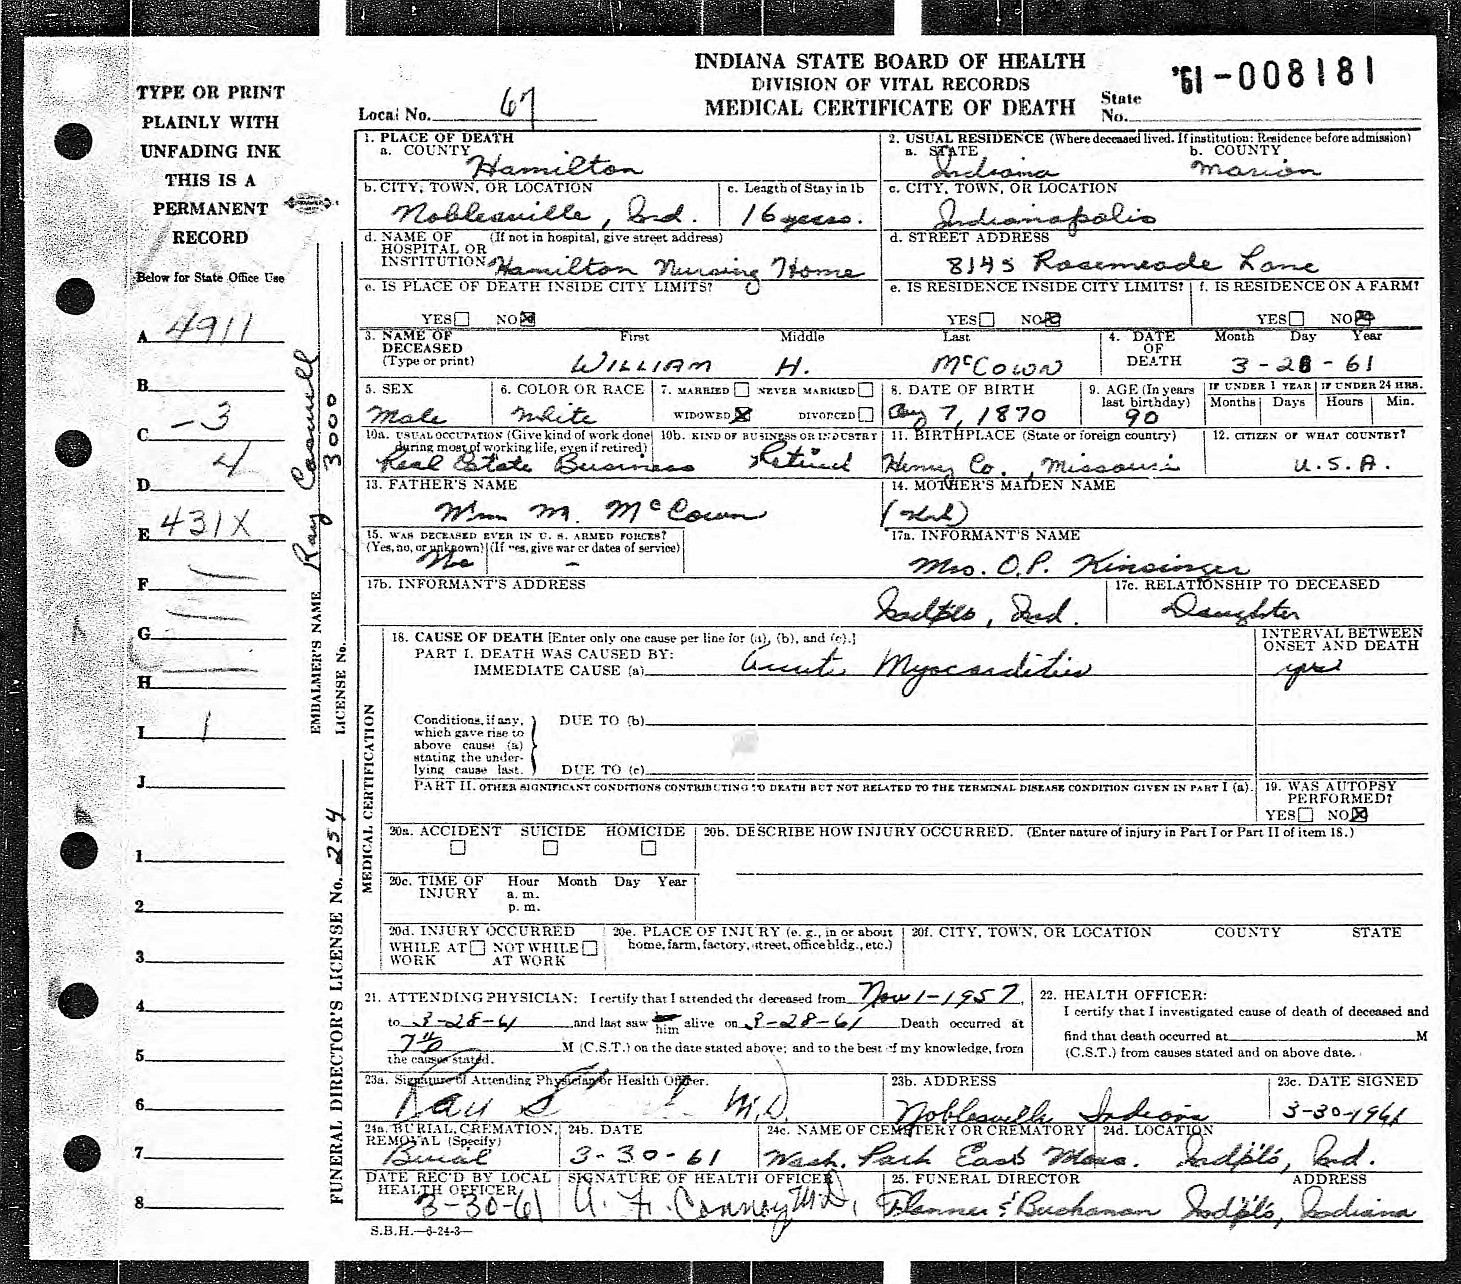 INDIANA STATE BOARD OF HEALTH
DIVISION OF VITAL RECORDS
MEDICAL CERTIFICATE OF DEATH
Local No. 67
State No. '61-008181
TYPE OR PRINT
PLAINLY WITH
UNFADING INK
THIS IS A
PERMANENT
RECORD
Below for State Office Use
A 4911
B
C -3
D 4
E 431X
F
G
H
I 1
J
1
2
3
4
5
6
7
8
EMBALMER'S NAME Ray LICENSE No. 3000
FUNERAL DIRECTOR'S LICENSE No. 254
1. PLACE OF DEATH
a. COUNTY Hamilton
2. USUAL RESIDENCE (Where deceased lived. If institution: Residence before admission)
a. STATE Indiana b. COUNTY Marion
b. CITY, TOWN, OR LOCATION Noblesville, Ind.
c. Length of Stay in 1b 16 years.
c. CITY, TOWN, OR LOCATION Indianapolis
d. NAME OF HOSPITAL OR INSTITUTION (If not in hospital, give street address) Hamilton Nursing Home
d. STREET ADDRESS 8145 Rosemeade Lane
e. IS PLACE OF DEATH INSIDE CITY LIMITS? YES NO
e. IS RESIDENCE INSIDE CITY LIMITS? YES NO
f. IS RESIDENCE ON A FARM? YES NO
3. NAME OF DECEASED (Type or print) First Middle Last
WILLIAM H. McCOWN
4. DATE OF DEATH Month Day Year
3-28-61
5. SEX Male
6. COLOR OR RACE White
7. MARRIED NEVER MARRIED
WIDOWED DIVORCED
8. DATE OF BIRTH Aug 7, 1870
9. AGE (In years last birthday) 90
IF UNDER 1 YEAR Months Days
IF UNDER 24 HRS. Hours Min.
10a. USUAL OCCUPATION (Give kind of work done during most of working life, even if retired) Real Estate Business
10b. KIND OF BUSINESS OR INDUSTRY Retired
11. BIRTHPLACE (State or foreign country) Henry Co., Missouri
12. CITIZEN OF WHAT COUNTRY? U.S.A.
13. FATHER'S NAME Wm M. McCown
14. MOTHER'S MAIDEN NAME
15. WAS DECEASED EVER IN U. S. ARMED FORCES?
(Yes, no, or unknown) (If yes, give war or dates of service)
No -
17a. INFORMANT'S NAME Mrs. O.P. Kinsinger
17b. INFORMANT'S ADDRESS Indpls, Ind.
17c. RELATIONSHIP TO DECEASED Daughter
MEDICAL CERTIFICATION
18. CAUSE OF DEATH [Enter only one cause per line for (a), (b), and (c).]
PART I. DEATH WAS CAUSED BY:
IMMEDIATE CAUSE (a) Acute Myocarditis
INTERVAL BETWEEN ONSET AND DEATH
Conditions, if any, which gave rise to above cause (a) stating the underlying cause last.
DUE TO (b)
DUE TO (c)
PART II. OTHER SIGNIFICANT CONDITIONS CONTRIBUTING TO DEATH BUT NOT RELATED TO THE TERMINAL DISEASE CONDITION GIVEN IN PART I (a).
19. WAS AUTOPSY PERFORMED?
YES NO
20a. ACCIDENT SUICIDE HOMICIDE
20b. DESCRIBE HOW INJURY OCCURRED. (Enter nature of injury in Part I or Part II of item 18.)
20c. TIME OF INJURY Hour Month Day Year
a. m.
p. m.
20d. INJURY OCCURRED
WHILE AT WORK NOT WHILE AT WORK
20e. PLACE OF INJURY (e. g., in or about home, farm, factory, street, office bldg., etc.)
20f. CITY, TOWN, OR LOCATION COUNTY STATE
21. ATTENDING PHYSICIAN: I certify that I attended the deceased from Nov 1-1957
to 3-28-61 and last saw him alive on 3-28-61 Death occurred at
M (C.S.T.) on the date stated above; and to the best of my knowledge, from
the causes stated.
22. HEALTH OFFICER:
I certify that I investigated cause of death of deceased and
find that death occurred at M
(C.S.T.) from causes stated and on above date.
23a. Signature of Attending Physician or Health Officer. M.D.
23b. ADDRESS Noblesville Indiana
23c. DATE SIGNED 3-30-1961
24a. BURIAL, CREMATION, REMOVAL (Specify) Burial
24b. DATE 3-30-61
24c. NAME OF CEMETERY OR CREMATORY Wash. Park East Maus.
24d. LOCATION Indpls, Ind.
DATE REC'D BY LOCAL HEALTH OFFICER 3-30-61
SIGNATURE OF HEALTH OFFICER
25. FUNERAL DIRECTOR ADDRESS
Flanner & Buchanan Indpls, Indiana
S.B.H.—6-24-3—